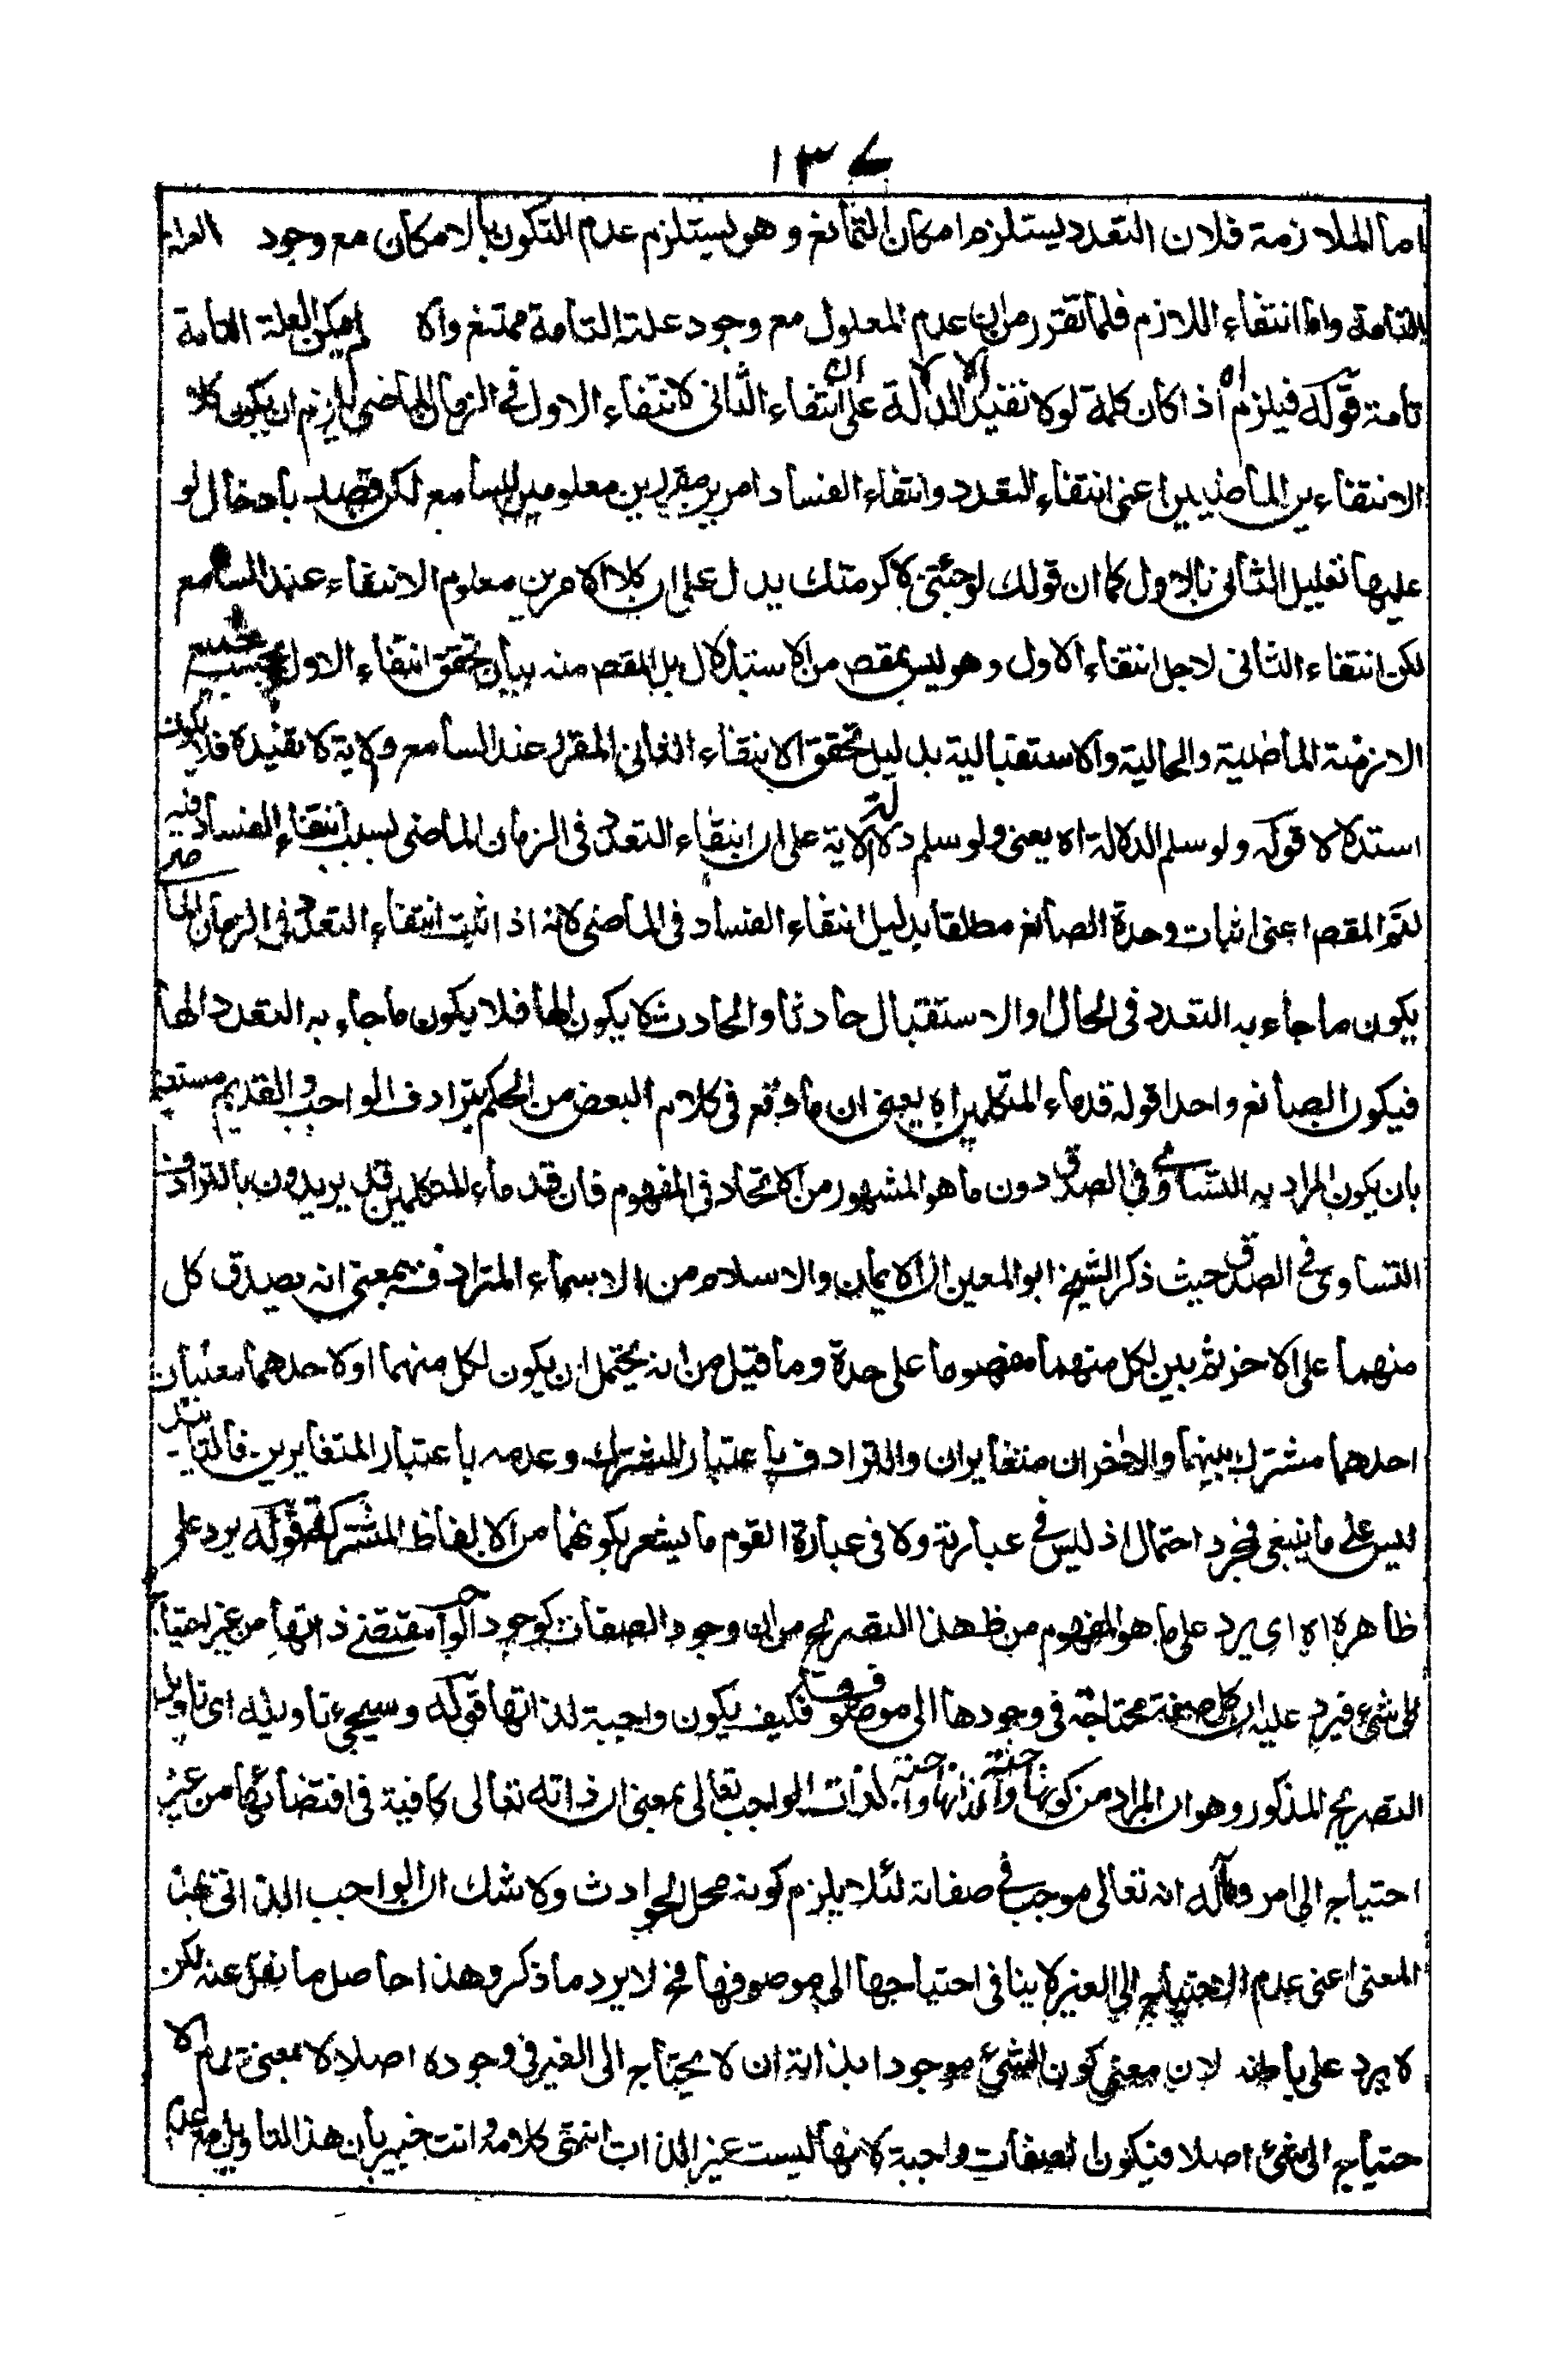 ١٣٧
اما الملازمة فلان التعدد يستلزم امكان التمانع وهو يستلزم عدم التكون بالامكان مع وجود العلة
التامة واما انتفاء اللازم فلما تقرر من ان عدم المعلول مع وجود علته التامة ممتنع والا لم يكن العلة التامة
تامة قوله فيلزم اه اذا كان كلمة لو لا تفيد الا الدلالة على ان انتفاء الثانى لانتفاء الاول فى الزمان الماضى يلزم ان يكون كلا
الانتفاءين الماضيين اعنى انتفاء التعدد وانتفاء الفساد امرين مقررين معلومين للسامع لكن قصد بادخال لو
عليها تعليل الثانى بالاول كما ان قولك لو جئتنى لاكرمتك يدل على ان كلا الامرين معلوم الانتفاء عند السامع
لكن انتفاء الثانى لاجل انتفاء الاول وهو ليس بمقص من الاستدلال بل المقص منه بيان تحقق انتفاء الاول بحسب جميع
الازمنة الماضية والحالية والاستقبالية بدليل تحقق الانتفاء الثانى المقرر عند السامع والاية لا تفيده فلا يكون
استدلالا قوله ولو سلم الدلالة اه يعنى ولو سلم دلالة الاية على ان انتفاء التعدد فى الزمان الماضى لسبب انتفاء الفساد فيه
لتم المقصم اعنى اثبات وحدة الصانع مطلقا بدليل انتفاء الفساد فى الماضى لانه اذا ثبت انتفاء التعدد فى الزمان الما
يكون ما جاء به التعدد فى الحال والاستقبال حادثا والحادث لا يكون الها فلا يكون ما جاء به التعدد الها
فيكون الصانع واحدا قوله قدماء المتكلمين اه يعنى ان ما وقع فى كلام البعض من الحكم بترادف الواجب والقديم مستقيم
بان يكون المراد به التساوى فى الصدق دون ما هو المشهور من الاتحاد فى المفهوم فان قدماء المتكلمين قد يريدون بالترادف
التساوى فى الصدق حيث ذكر الشيخ ابو المعين ان الايمان والاسلام من الاسماء المترادفة بمعنى انه يصدق كل
منهما على الاخر ثم بين لكل منهما مفهوما على حدة وما قيل من انه يحتمل ان يكون لكل منهما او لاحدهما معنيان
احدهما مشترك بينهما والاخران متغايران والترادف باعتبار المشترك وعدمه باعتبار المتغايرين فالتائيد
ليس على ما ينبغى فمجرد احتمال اذ ليس فى عبارته ولا فى عبارة القوم ما يشعر بكونهما من الالفاظ المشتركة قوله يرد على
ظاهره اه اى يرد على ما هو المفهوم من ظ هذا التصريح من ان وجود الصفات كوجود الواجب مقتضى ذاتها من غير احتياج
الى شئ فيرد عليه ان كل صفة محتاجة فى وجودها الى موصوفها فكيف يكون واجبة لذاتها قوله وسيجئ تاويله اى تاويل
التصريح المذكور وهو ان المراد من كونها واجبة لذاتها واجبة لذات الواجب تعالى بمعنى ان ذاته تعالى كافية فى اقتضائها من غير
احتياج الى امر ومآله انه تعالى موجب فى صفاته لئلا يلزم كونه محل الحوادث ولا شك ان الواجب الذاتى بهذا
المعنى اعنى عدم الاحتياج الى الغير لا ينافى احتياجها الى موصوفها فح لا يرد ما ذكر وهذا حاصل ما نقل عنه لكن
لا يرد على باطنه لان معنى كون الشئ موجودا بذاته ان لا يحتاج الى الغير فى وجوده اصلا لا بمعنى تمام الا
حتياج الى شئ اصلا فيكون الصفات واجبة لانها ليست غير الذات انتهى كلامه وانت خبير بان هذا التاويل مع عدم